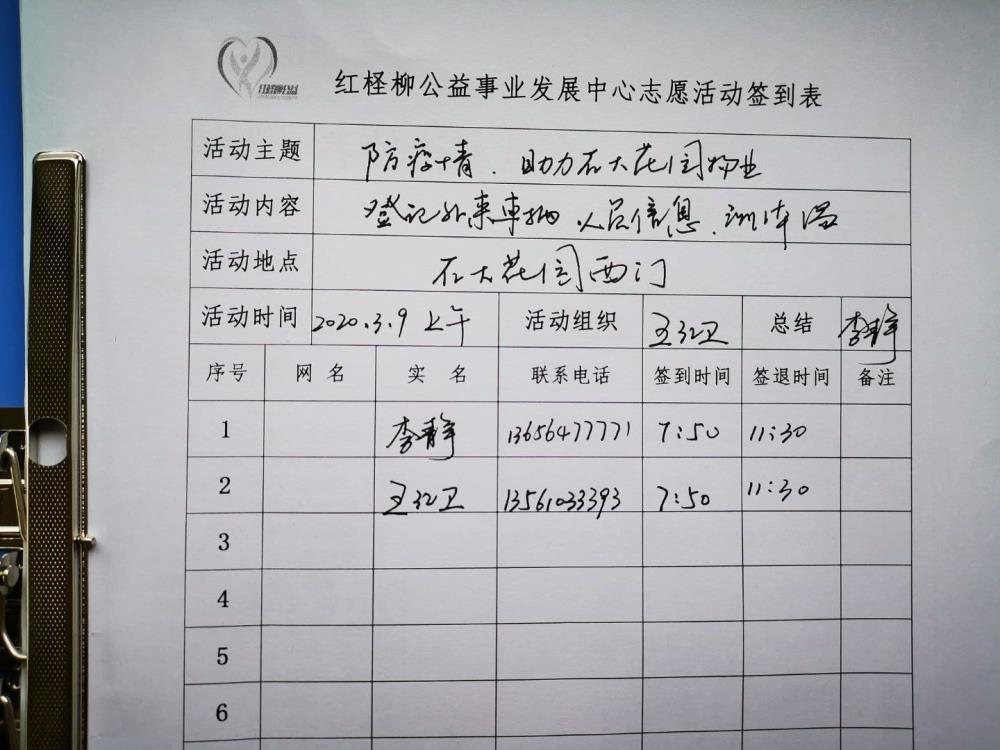 红柽柳公益
红柽柳公益事业发展中心志愿活动签到表
活动主题 防疫情、助力石大花园物业
活动内容 登记外来車辆、人员信息、测体温
活动地点 石大花园西门
活动时间 2020.3.9 上午 活动组织 王红卫 总结 李静
序号 网名 实名 联系电话 签到时间 签退时间 备注
1 李静 13656477771 7:50 11:30
2 王红卫 13561033393 7:50 11:30
3
4
5
6